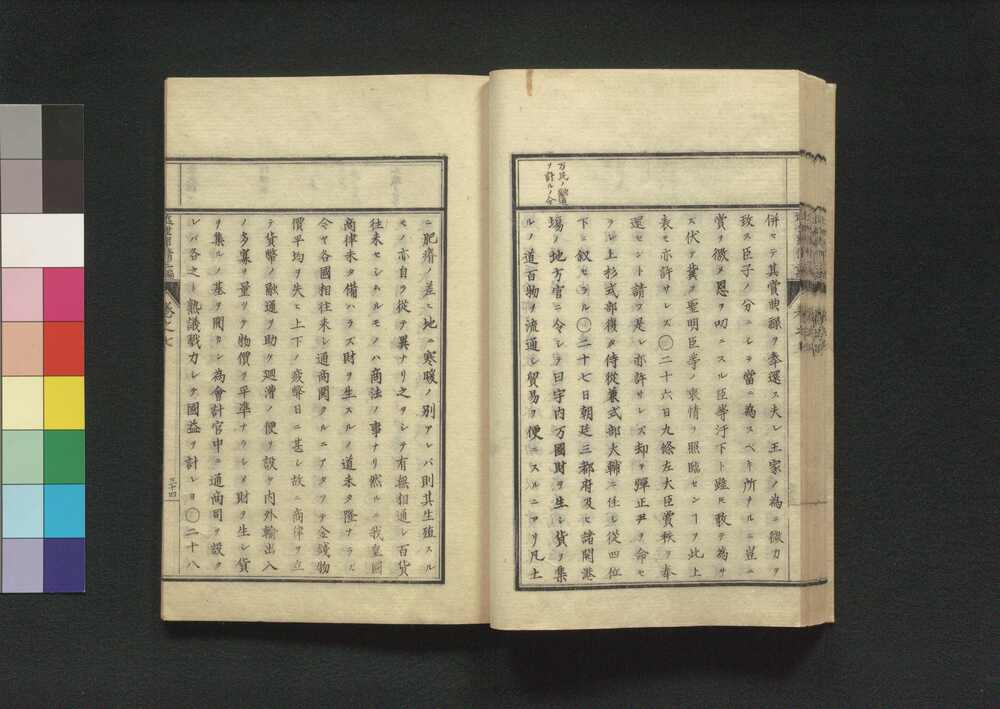 併セテ其賞典祿ヲ奉還ス夫レ王家ノ為ニ微力ヲ
致ス臣子ノ分ニシテ當ニ為スベキ所ナルニ豈ニ
賞ヲ徼メ恩ヲ叨ニスル臣等汙下ト雖モ敢テ為サ
ズ伏テ冀クハ聖明臣等ノ衷情ヲ照臨センヿヲ此上
表モ亦許サレズ○二十六日九條左大臣賣秩ヲ奉
還セント請フ是レ亦許サレズ却テ彈正尹ヲ命セ
ラル上杉式部復タ侍從兼式部大輔ニ任シ從四位
下ニ叙セラル○二十七日朝廷三都府及ヒ諸開港
場ノ地方官ニ令シテ曰宇内万國財ヲ生シ貨ヲ集
ルノ道百物ヲ流通シ貿易ヲ便ニスルニアリ凡土
ニ肥瘠ノ差ヒ地ニ寒暖ノ別アレバ則其生殖スル
モノ亦自ラ從テ異ナリ之ヲシテ有無相通シ百貨
往来セシムルモノハ商法ノ事ナリ然ルニ我皇國
商律未タ備ハラズ財ヲ生スルノ道未タ隆ナラズ
今ヤ各國相往来シ通商開クルニアタツテ金錢物
價平均ヲ失ヒ上下ノ疲弊日ニ甚シ故ニ商律ヲ立
テ貨幣ノ融通ヲ助ケ廻漕ノ便ヲ設ケ内外輸出入
ノ多寡ヲ量リテ物價ヲ平準ナラシメ財ヲ生シ貨
ヲ集ルノ基ヲ開カン為會計官中ニ通商司ヲ設ク
レバ各之ト熟議戮力シテ國益ヲ計レヨ○二十八
巻之七
三十四